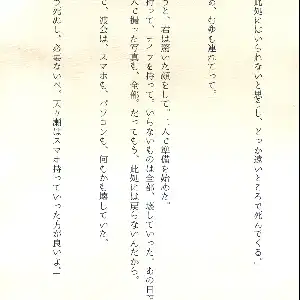 此処にはいられないと思うし、どっか遠いところで死んでくる」
ゆを連れてって。
うと、君は驚いた顔をして、二人で準備を始めた。
持って、ナイフを持って。いらないものは全部、壊していった。あの日
人で撮った写真も、全部。だってもう、此処には戻らないんだから。
て、渡会は、スマホも、パソコンも、何もかも壊していた。
う死ぬし、必要ないべ。天ヶ瀬はスマホ持っていった方が良いよ」